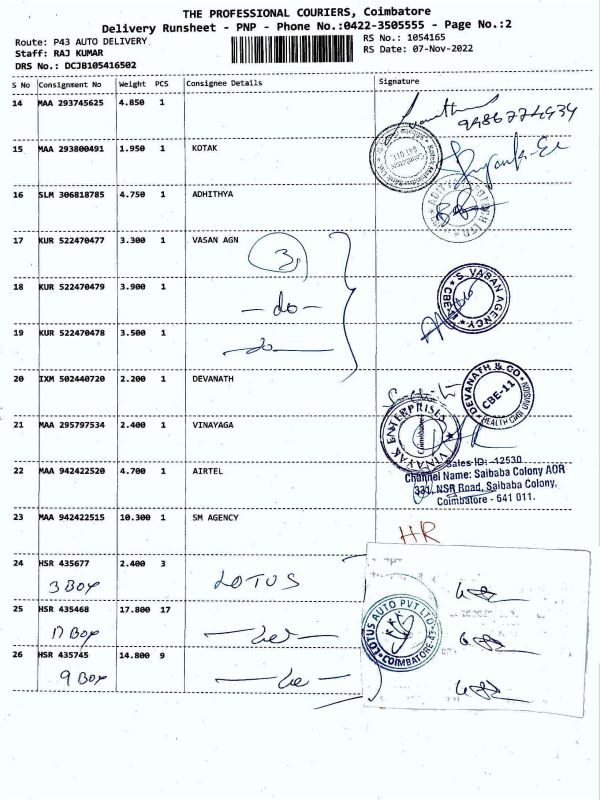 THE PROFESSIONAL COURIERS, Coimbatore
Delivery Runsheet - PNP - Phone No.:0422-3505555 - Page No.:2
Route: P43 AUTO DELIVERY
RS No.: 1054165
Staff: RAJ KUMAR
RS Date: 07-Nov-2022
DRS No.: DCJB105416502
S No Consignment No Weight PCS Consignee Details Signature
14 MAA 293745625 4.850 1
15 MAA 293800491 1.950 1 KOTAK
16 SLM 306818785 4.750 1 ADHITHYA
17 KUR 522470477 3.300 1 VASAN AGN
3
18 KUR 522470479 3.900 1
- do -
S. VASAN AGENCY
CBE-
19 KUR 522470478 3.500 1
- do -
20 IXM 502440720 2.200 1 DEVANATH
DEVANATH & CO
CBE-11
HEALTH CARE DIVISION
21 MAA 295797534 2.400 1 VINAYAGA
VINAYAK ENTERPRISES
Coimbatore
22 MAA 942422520 4.700 1 AIRTEL
Sales ID: 12530
Channel Name: Saibaba Colony AOR
331, NSR Road, Saibaba Colony,
Coimbatore - 641 011.
23 MAA 942422515 10.300 1 SM AGENCY
HR
24 HSR 435677 2.400 3
3 BOX
LOTUS
25 HSR 435468 17.800 17
17 BOX
LOTUS AUTO PVT LTD
COIMBATORE-45
26 HSR 435745 14.800 9
9 BOX